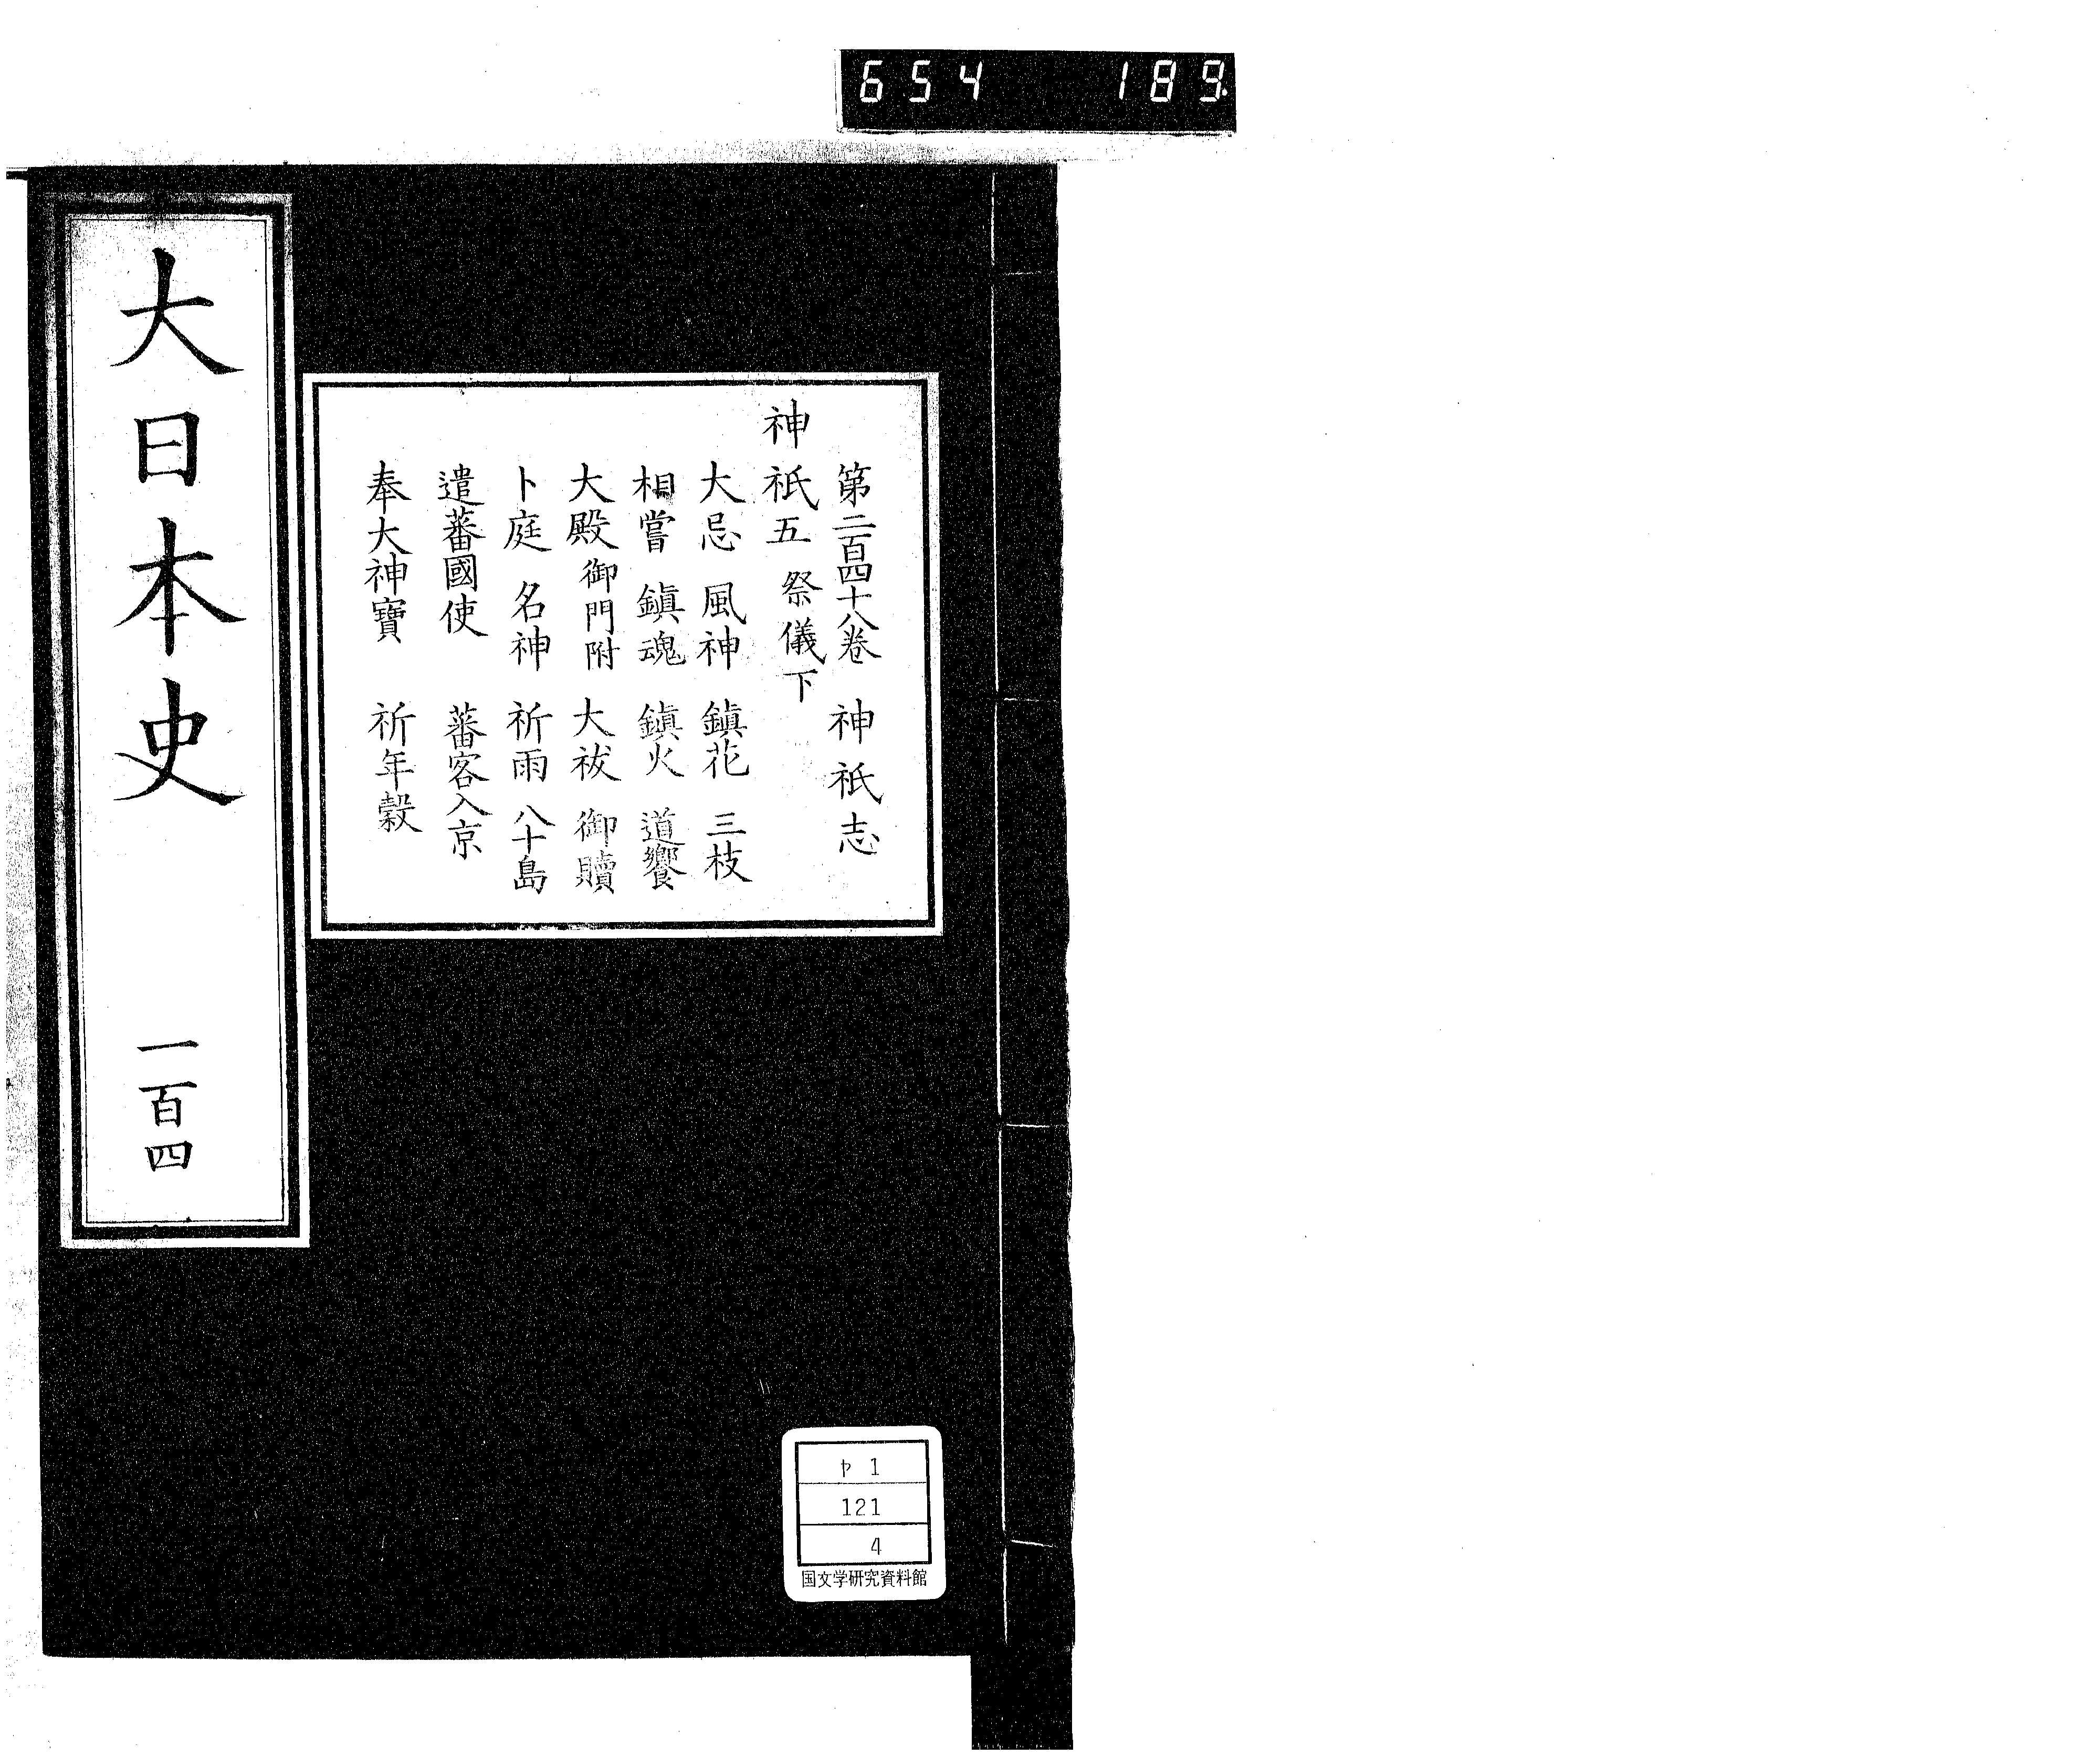 654 189.
第二百四十八卷 神祇志
神祇五 祭儀下
大忌 風神 鎮花 三枝
相嘗 鎮魂 鎮火 道饗
大殿 御門附 大祓 御贖
卜庭 名神 祈雨 八十島
遣蕃國使 蕃客入京
奉大神寶 祈年穀
大日本史 一百四
ヤ 1
121
4
国文学研究資料館